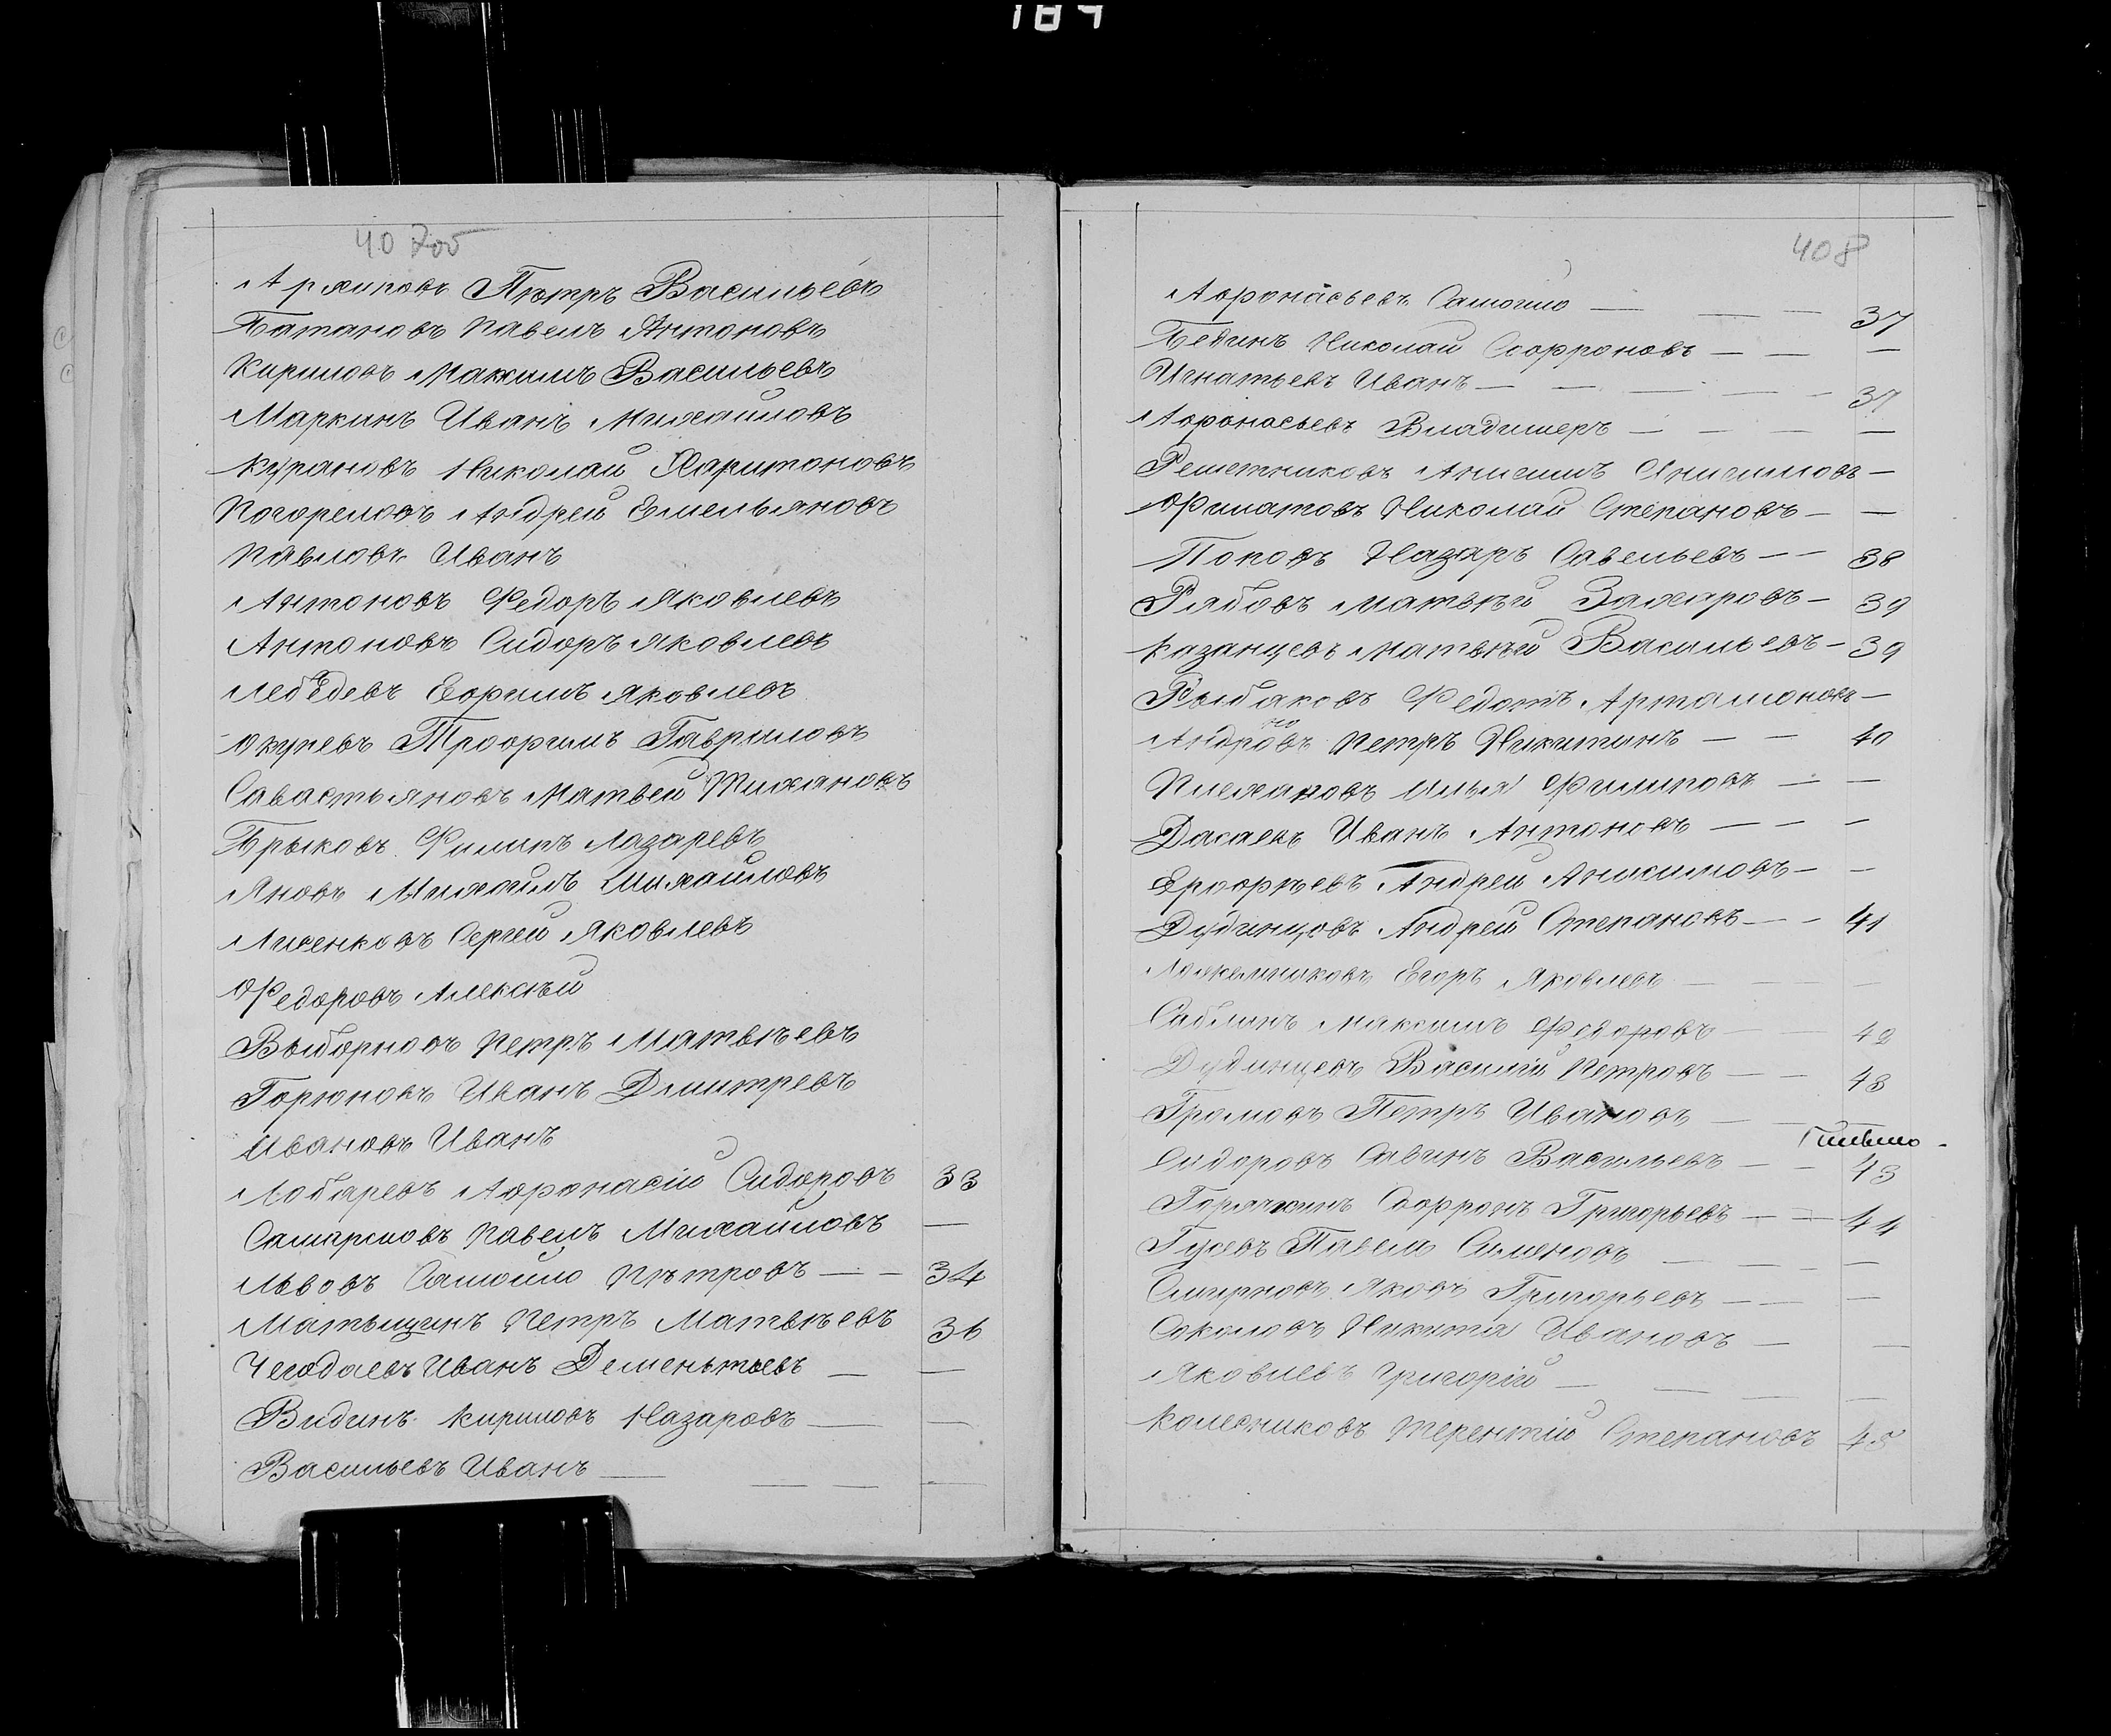 184
407об
Архиповъ Пѣтръ Васильевъ
Батановъ Павелъ Антоновъ
Кириловъ Максимъ Васильевъ
Маркинъ Иванъ Михаиловъ
Курановъ Николай Харитоновъ
Погореловъ Андрей Емельяновъ
Павловъ Иванъ
Антоновъ Федоръ Яковлевъ
Антоновъ Сидоръ Яковлевъ
Лебедевъ Ефримъ Яковлевъ
Окуневъ Трофримъ Гавриловъ
Савастьяновъ Матвей Тихановъ
Брыковъ Филипъ Лазаревъ
Яновъ Михаилъ Михайловъ
Лисенковъ Сергей Яковлевъ
Федоровъ Алексѣй
Выборновъ Петръ Матвѣевъ
Горюновъ Иванъ Дмитревъ
Ивановъ Иванъ
Лобаревъ Афронасій Сидоровъ 33
Самарсковъ Павелъ Михайловъ —
Львовъ Самоило Пѣтровъ — — 34
Матьщинъ Петръ Матвѣевъ 36
Чегодаевъ Иванъ Дементьевъ — —
Видинъ Кириловъ Назаровъ — —
Васильевъ Иванъ — — — —
408
Афронасьевъ Самоило — — — 37
Бединъ Николай Софроновъ — — —
Игнатьевъ Иванъ — — — — — 37
Афронасьевъ Владимеръ — — — — —
Решетниковъ Анисимъ Анисимовъ —
Филатовъ Николай Степановъ — —
Поповъ Назаръ Савельевъ — — 38
Рябовъ Матвѣй Захаровъ — 39
Казанцевъ Матвѣй Васильевъ — 39
Рыбаковъ Федотъ Артамоновъ —
Андроновъ Петръ Никитинъ — — 40
Плехановъ Илья Филиповъ — —
Дасаевъ Иванъ Антоновъ — — —
Ерофрѣевъ Андрей Анисимовъ — —
Дудинцовъ Андрей Степановъ — — 41
Егоръ Яковлевъ — — — —
Саблинъ Максимъ Федоровъ — — 42
Дудинцевъ Василій Петровъ — — 43
Громовъ Петръ Ивановъ — —
Сидоровъ Савинъ Васильевъ — — 43
Горячкинъ Софронъ Григорьевъ — — 44
Гусевъ Павелъ Семеновъ — — — —
Смирновъ Яковъ Григорьевъ — — —
Соколовъ Никита Ивановъ — —
Яковлевъ Григорій — — — —
Колесниковъ Терентій Степановъ 45